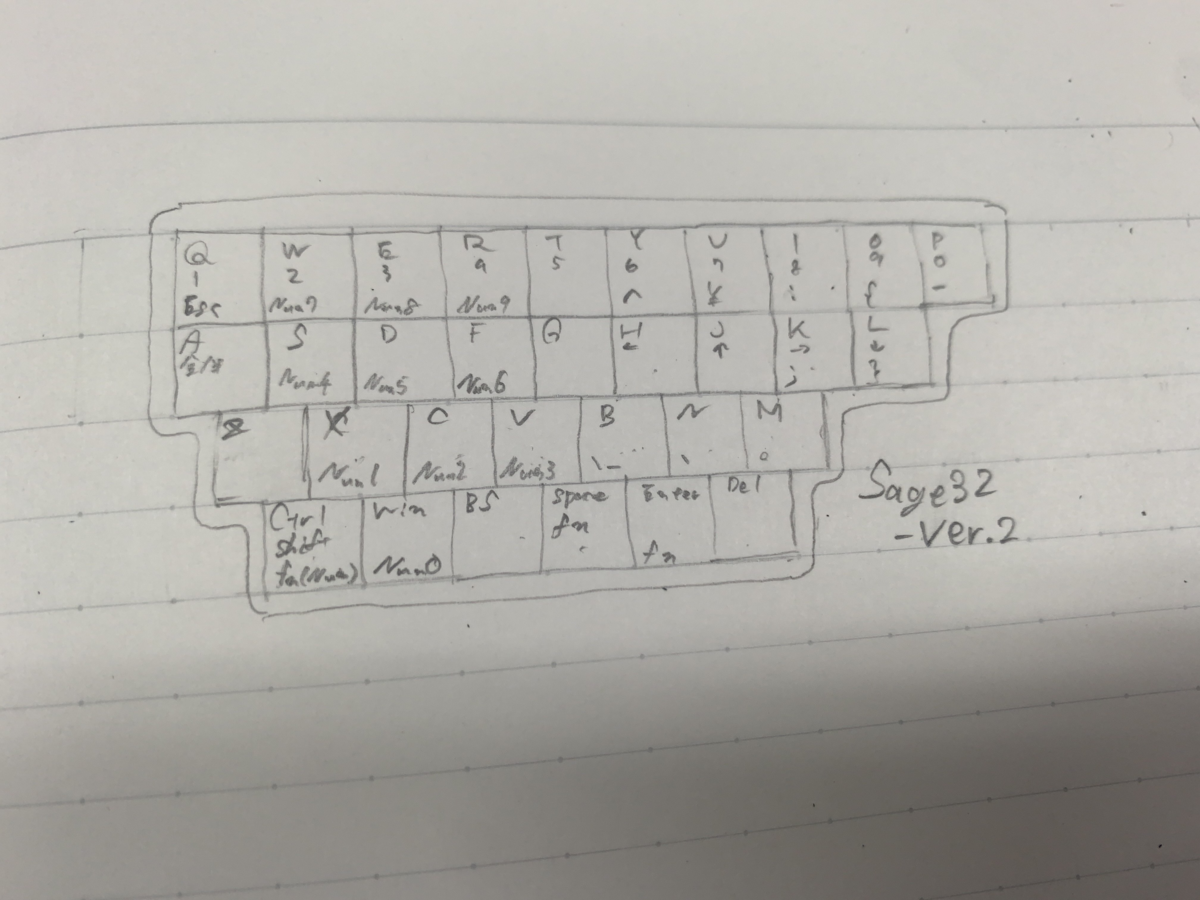 Q W E R T Y U I O P
1 2 3 4 5 6 7 8 9 0
Esc Num7 Num8 Num9 ^ ¥ : { -
A S D F G H J K L
半/全 ← ↑ → ↓
Num4 Num5 Num6 ; }
Z X C V B N M
Num1 Num2 Num3 \_ 、 。
Ctrl Win BS Space Enter Del
Shift fn
fn(Num) Num0 fn
Sage32
-Ver.2